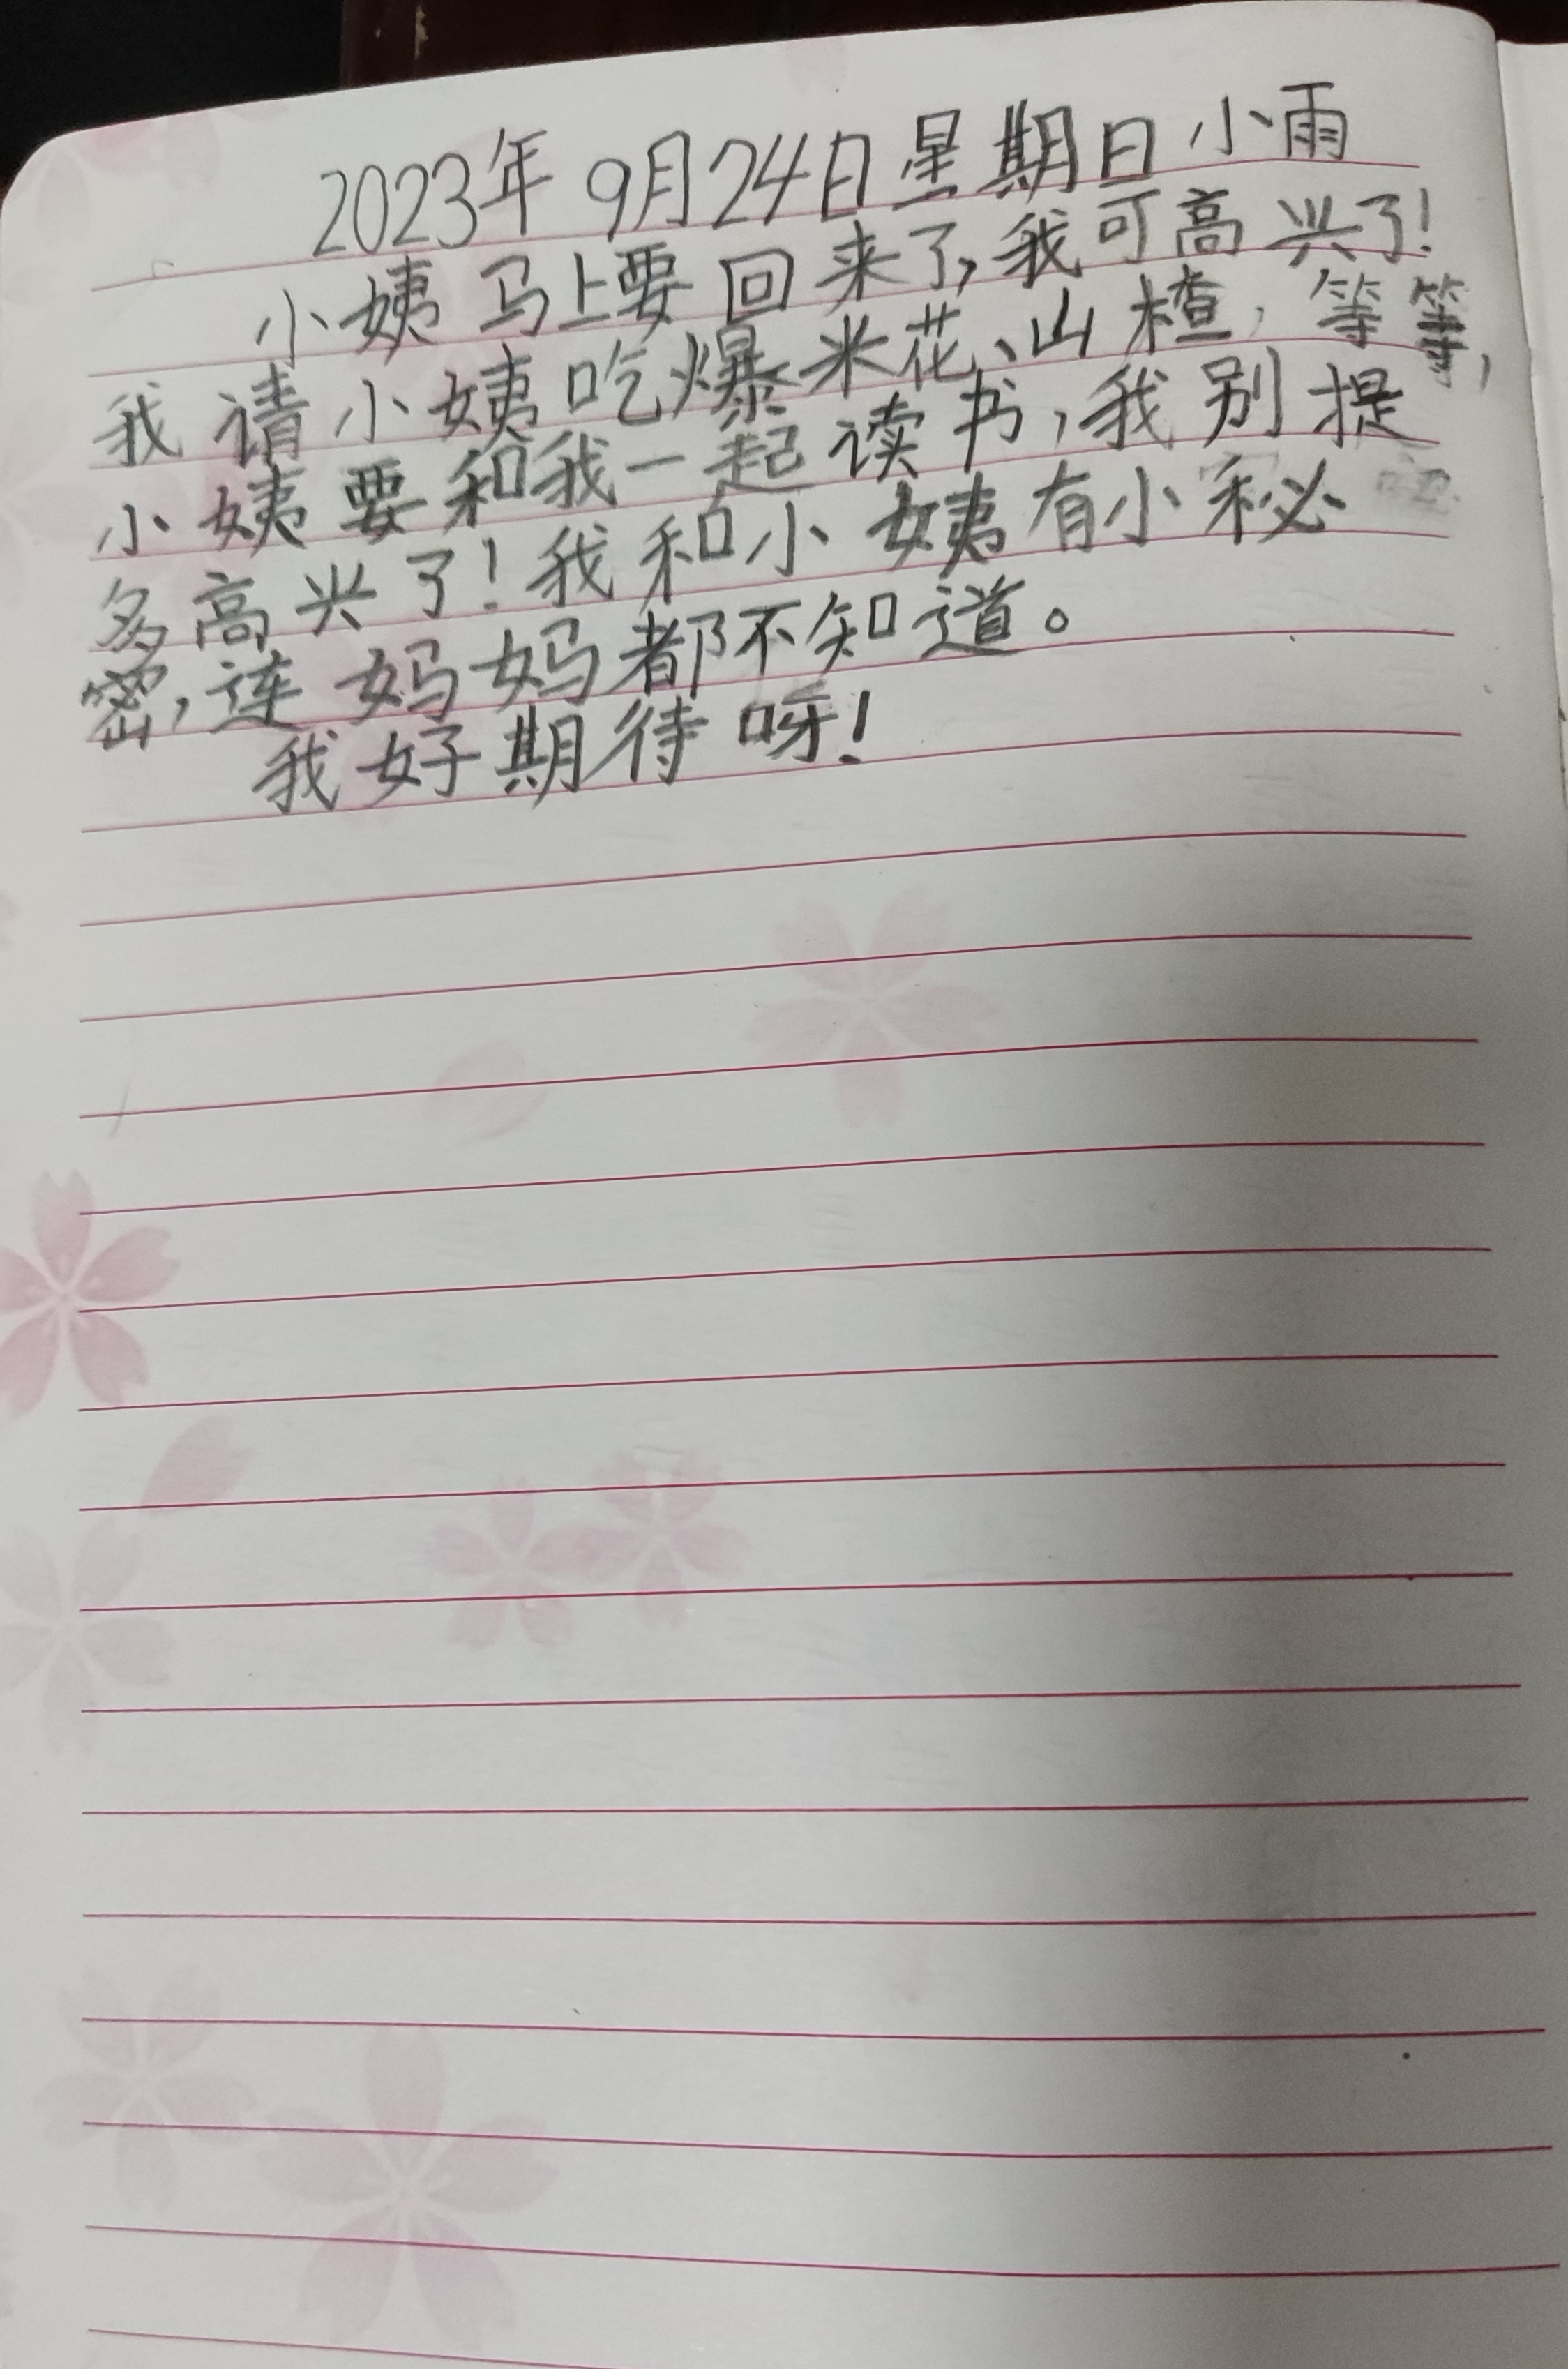 2023年9月24日星期日小雨
小姨马上要回来了,我可高兴了!
我请小姨吃爆米花、山楂,等等,
小姨要和我一起读书,我别提
多高兴了!我和小姨有小秘
密,连妈妈都不知道。
我好期待呀!